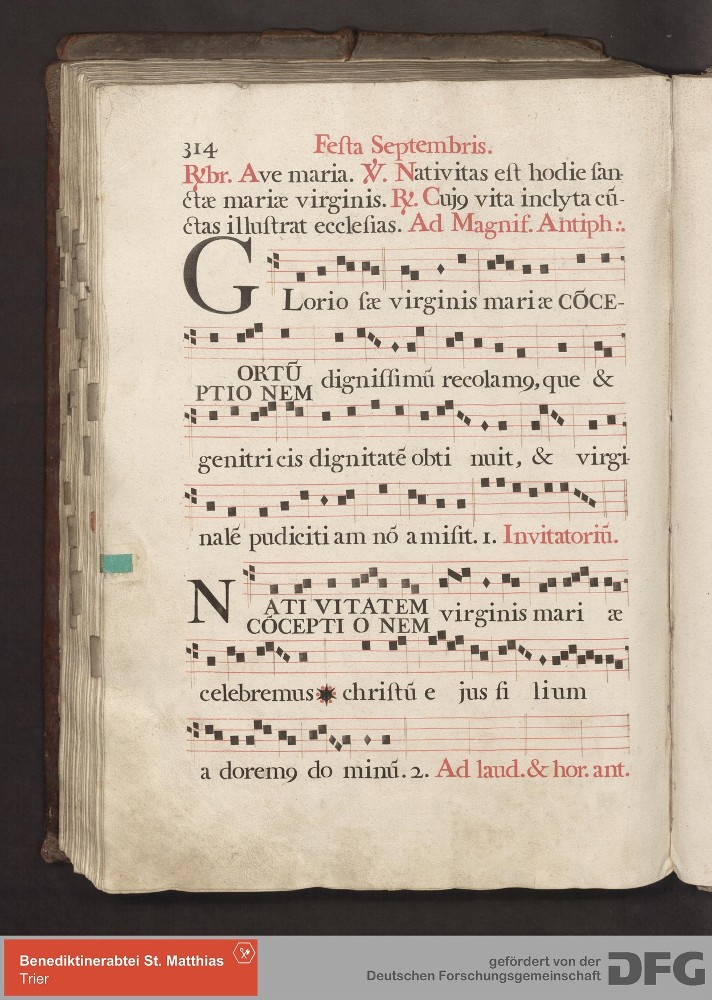 314 Feſta Septembris.
R̸br. Ave maria. V̸. Nativitas eſt hodie ſan-
ctæ mariæ virginis. R̸. Cujꝯ vita inclyta cū-
ctas illuſtrat eccleſias. Ad Magnif. Antiph:.
GLorio ſæ virginis mariæ CŌCE-
ORTŪ
PTIO NEM digniſſimū recolamꝯ, que &
genitri cis dignitatē obti nuit, & virgi-
nalē pudiciti am nō amiſit. 1. Invitatoriū.
NATI VITATEM
CŌCEPTI O NEM virginis mari æ
celebremus * chriſtū e jus fi lium
a doremꝯ do minū. 2. Ad laud. & hor. ant.
Benediktinerabtei St. Matthias
Trier
gefördert von der
Deutschen Forschungsgemeinschaft DFG